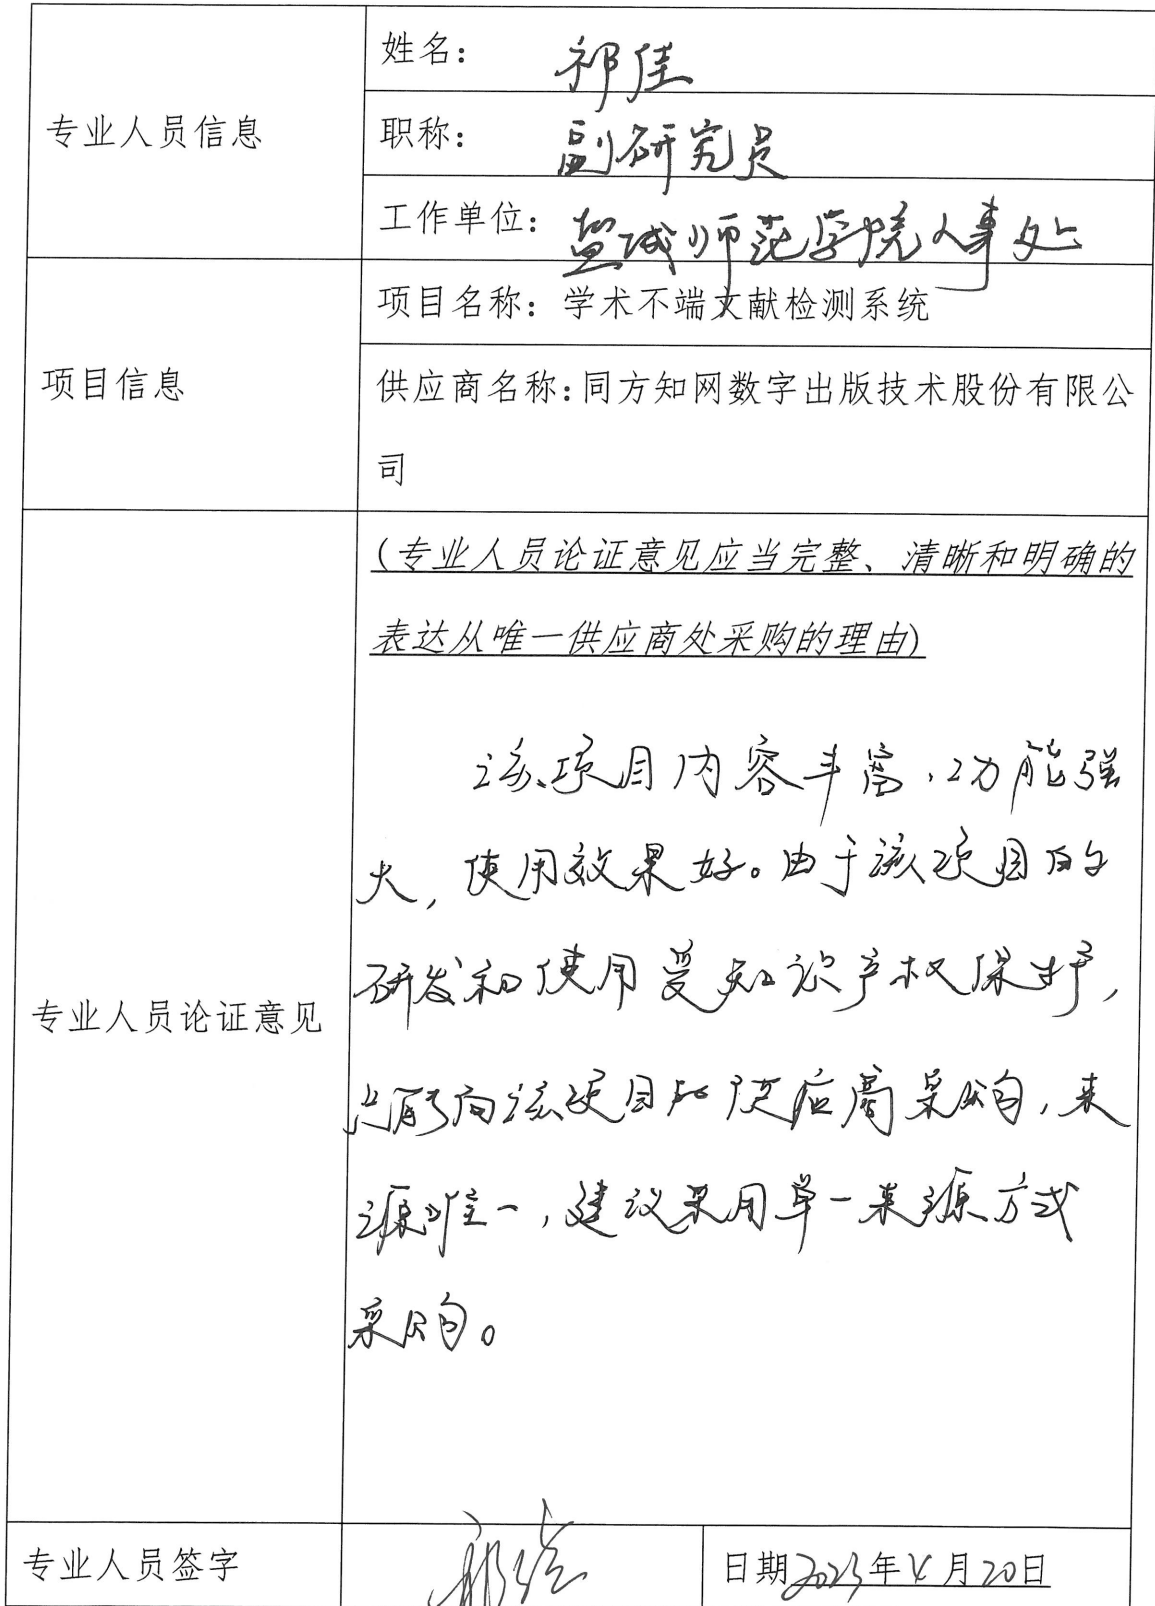 专业人员信息
姓名：祁佳
职称：副研究员
工作单位：盐城师范学院人事处
项目信息
项目名称：学术不端文献检测系统
供应商名称：同方知网数字出版技术股份有限公
司
专业人员论证意见
（专业人员论证意见应当完整、清晰和明确的
表达从唯一供应商处采购的理由）
该项目内容丰富，功能强
大，使用效果好。由于该项目的
研发和使用受知识产权保护，
只能向该项目的供应商采购，来
源唯一，建议采用单一来源方式
采购。
专业人员签字
祁佳
日期2023年4月20日